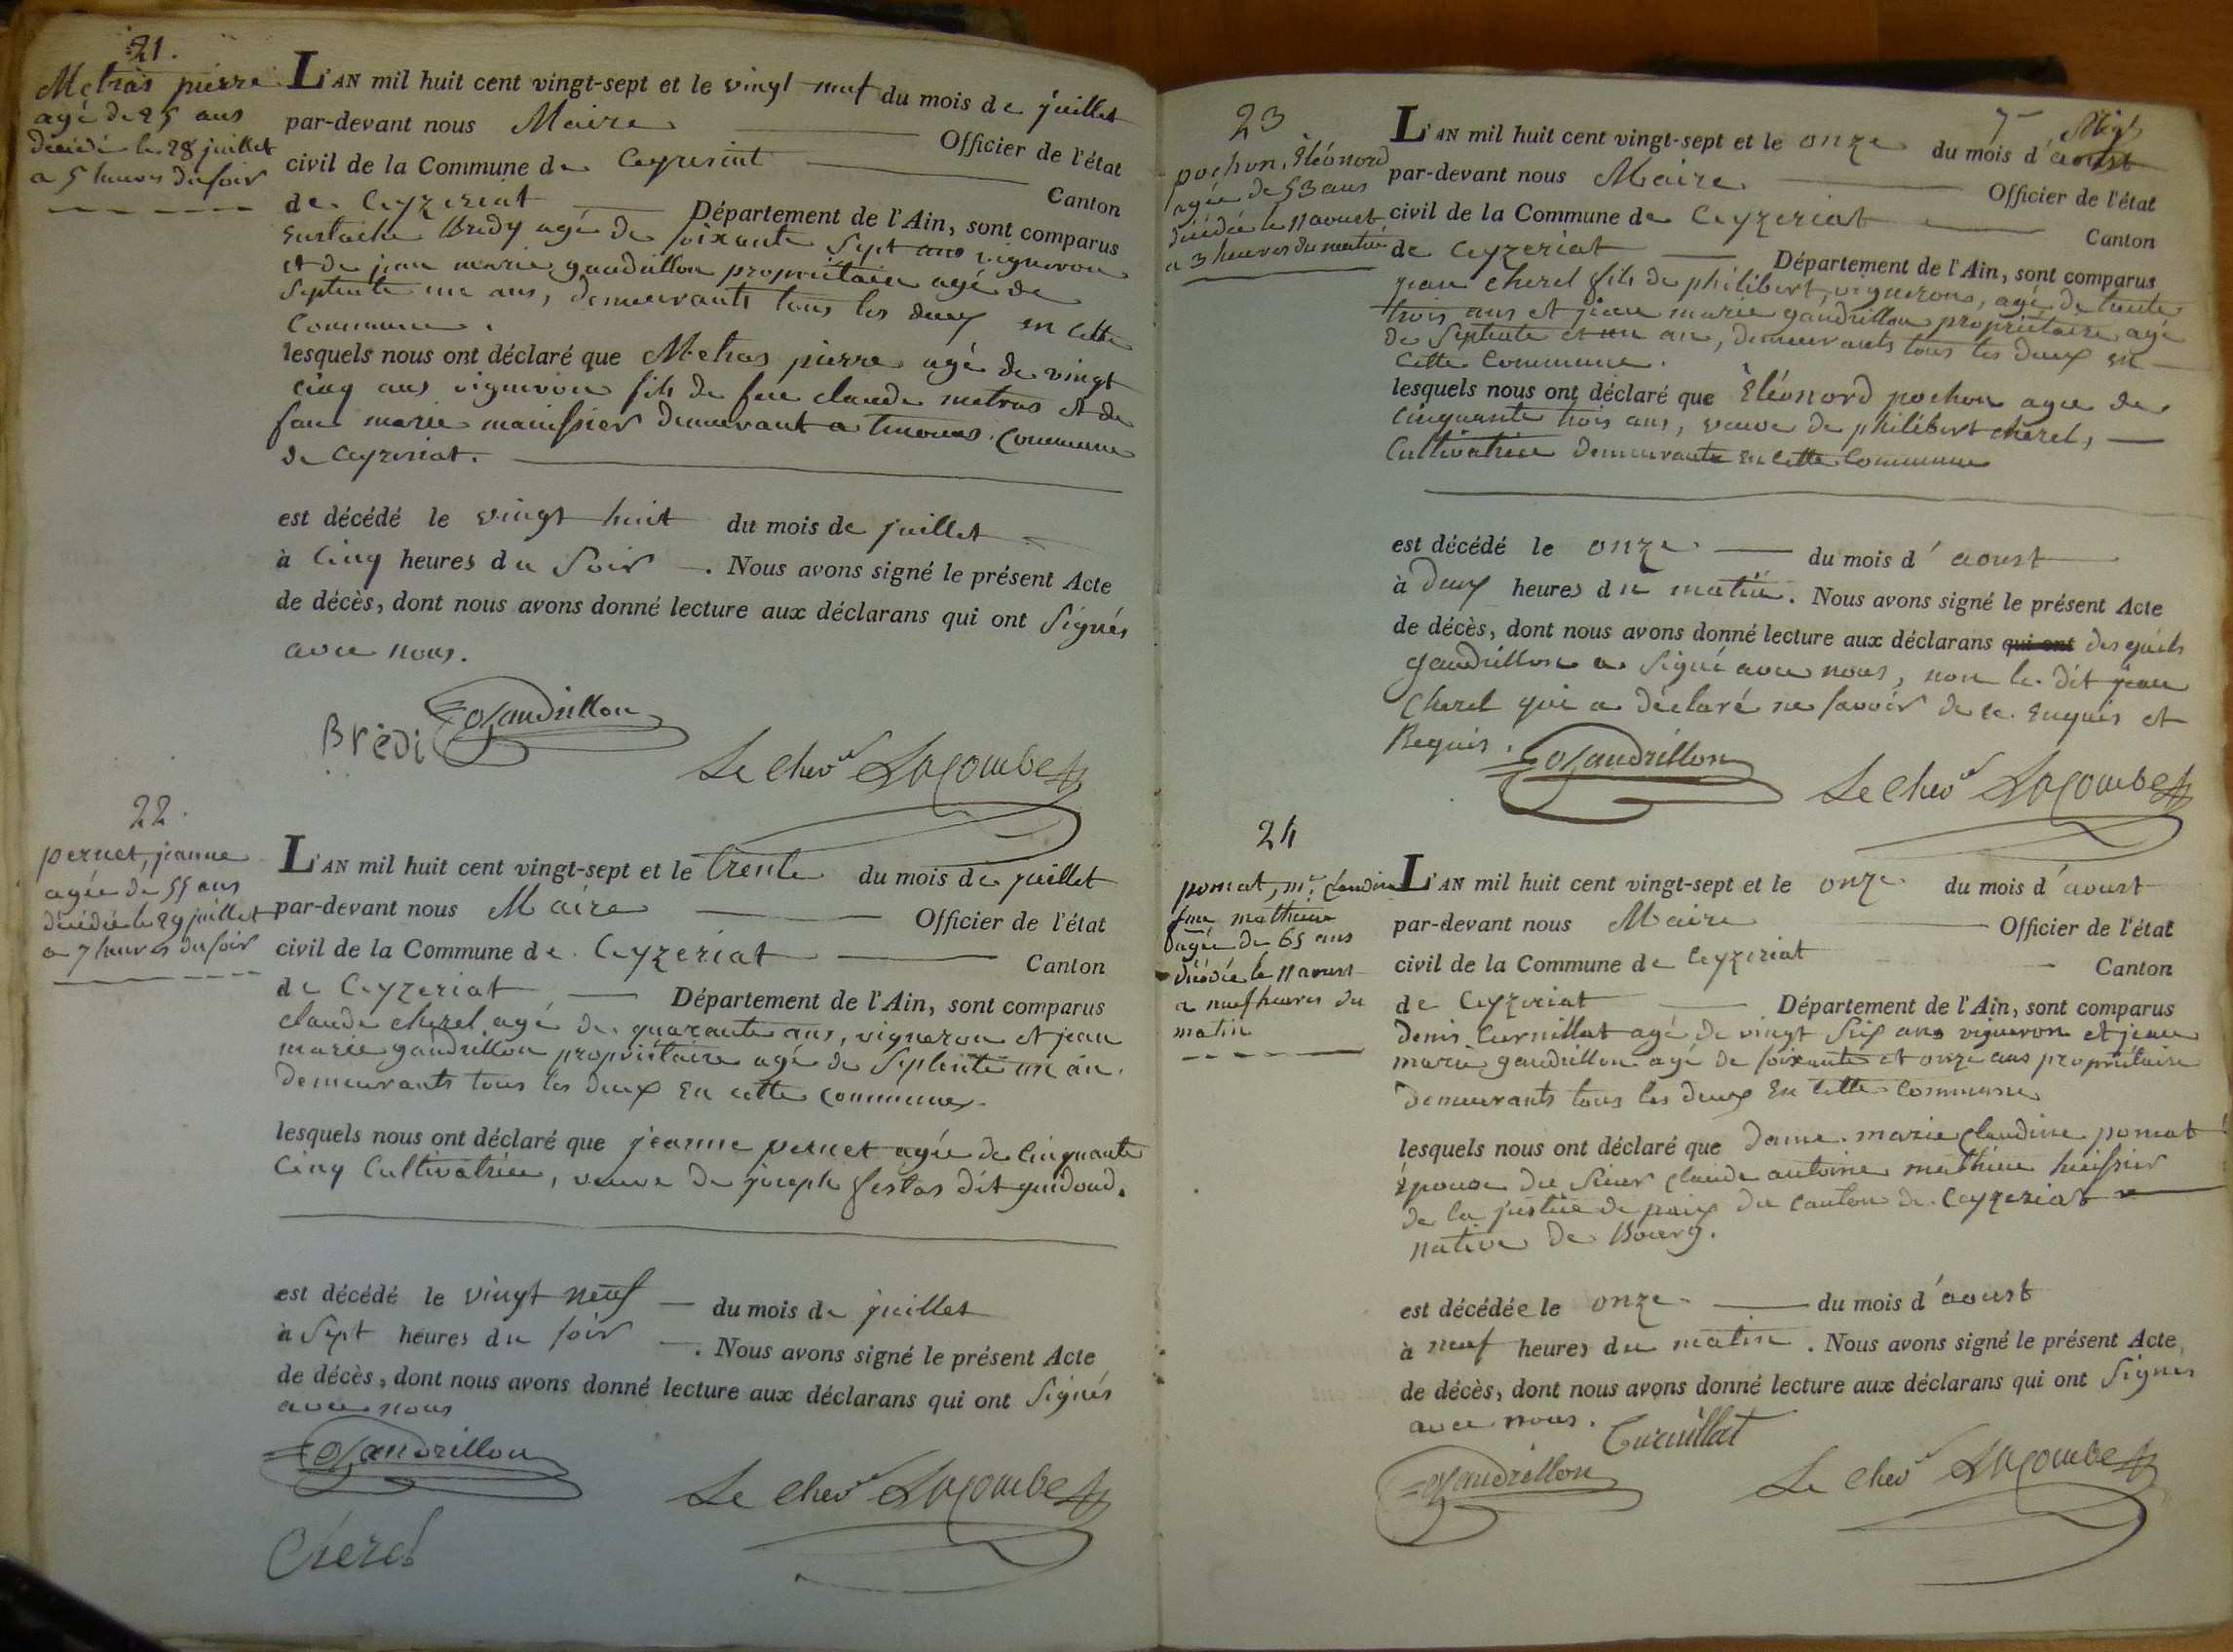 21.
Metras pierre
agé de 25 ans
décédé le 28 juillet
a 5 heures du soir
L'AN mil huit cent vingt-sept et le vingt neuf du mois de juillet
par-devant nous Maire Officier de l'état
civil de la Commune de Ceyzeriat Canton
de Ceyzeriat Département de l'Ain, sont comparus
Eustache Bredy agé de soixante sept ans vigneron
et de jean marie gaudrillon propriétaire agé de
septente un ans, demeurants tous les deux en cette
Commune.
lesquels nous ont déclaré que Metras pierre agé de vingt
cinq ans vigneron fils de feu claude metras et de
feu marie manissier demeurant a commune
de Ceyzeriat.
est décédé le vingt huit du mois de juillet
à Cinq heures du Soir. Nous avons signé le présent Acte
de décès, dont nous avons donné lecture aux déclarans qui ont Signés
avec nous.
Brédi Gaudrillon
Le Chever Lacombe
22.
pernet, jeanne
agée de 55 ans
décédée le 29 juillet
a 7 heures du soir
L'AN mil huit cent vingt-sept et le trente du mois de juillet
par-devant nous Maire Officier de l'état
civil de la Commune de Ceyzeriat Canton
de Ceyzeriat Département de l'Ain, sont comparus
claude cherel agé de quarante ans, vigneron et jean
marie gaudrillon propriétaire agé de Septente un an
demeurants tous les deux En cette commune.
lesquels nous ont déclaré que jeanne pernet agée de Cinquante
Cinq Cultivatrice, veuve de joseph festas dit guidoud.
est décédé le vingt neuf du mois de juillet
à Sept heures du soir. Nous avons signé le présent Acte
de décès, dont nous avons donné lecture aux déclarans qui ont Signés
avec nous
Gaudrillon
Le Chever Lacombe
Cherel
23
pochon, Eléonord
agée de 53 ans
décédée le 11 aoust
a 3 heures du matin
7
L'AN mil huit cent vingt-sept et le onze du mois d'aoust
par-devant nous Maire Officier de l'état
civil de la Commune de Ceyzeriat Canton
de Ceyzeriat Département de l'Ain, sont comparus
jean cherel fils de philibert, vignerons, agé de trente
trois ans et jean marie gaudrillon propriétaire agé
de Septente et un an, demeurants tous les deux en
Cette Commune.
lesquels nous ont déclaré que Eléonord pochon agée de
Cinquante trois ans, veuve de philibert cherel,
Cultivatrice demeurante En cette Commune
est décédé le onze du mois d'aoust
à deux heures du matin. Nous avons signé le présent Acte
de décès, dont nous avons donné lecture aux déclarans qui ont desquels
gaudrillon a Signé avec nous, non le dit jean
Cherel qui a déclaré ne savoir de ce Enquis et
Requis.
Gaudrillon
Le Chever Lacombe
24
poncat, mie Claudine
fme mathieu
agée de 65 ans
décédée le 11 aoust
a neuf heures du
matin
L'AN mil huit cent vingt-sept et le onze du mois d'aoust
par-devant nous Maire Officier de l'état
civil de la Commune de Ceyzeriat Canton
de Ceyzeriat Département de l'Ain, sont comparus
denis Curnillat agé de vingt Six ans vigneron et jean
marie gaudrillon agé de soixante et onze ans propriétaire
demeurants tous les deux En Cette Commune
lesquels nous ont déclaré que dame marie claudine poncat
Epouse du Sieur claude antoine mathieu huissier
de la justice de paix du canton de Ceyzeriat
native de Bourg.
est décédée le onze du mois d'aoust
à neuf heures du matin. Nous avons signé le présent Acte
de décès, dont nous avons donné lecture aux déclarans qui ont Signés
avec nous. Curnillat
Gaudrillon
Le Chevr Lacombe